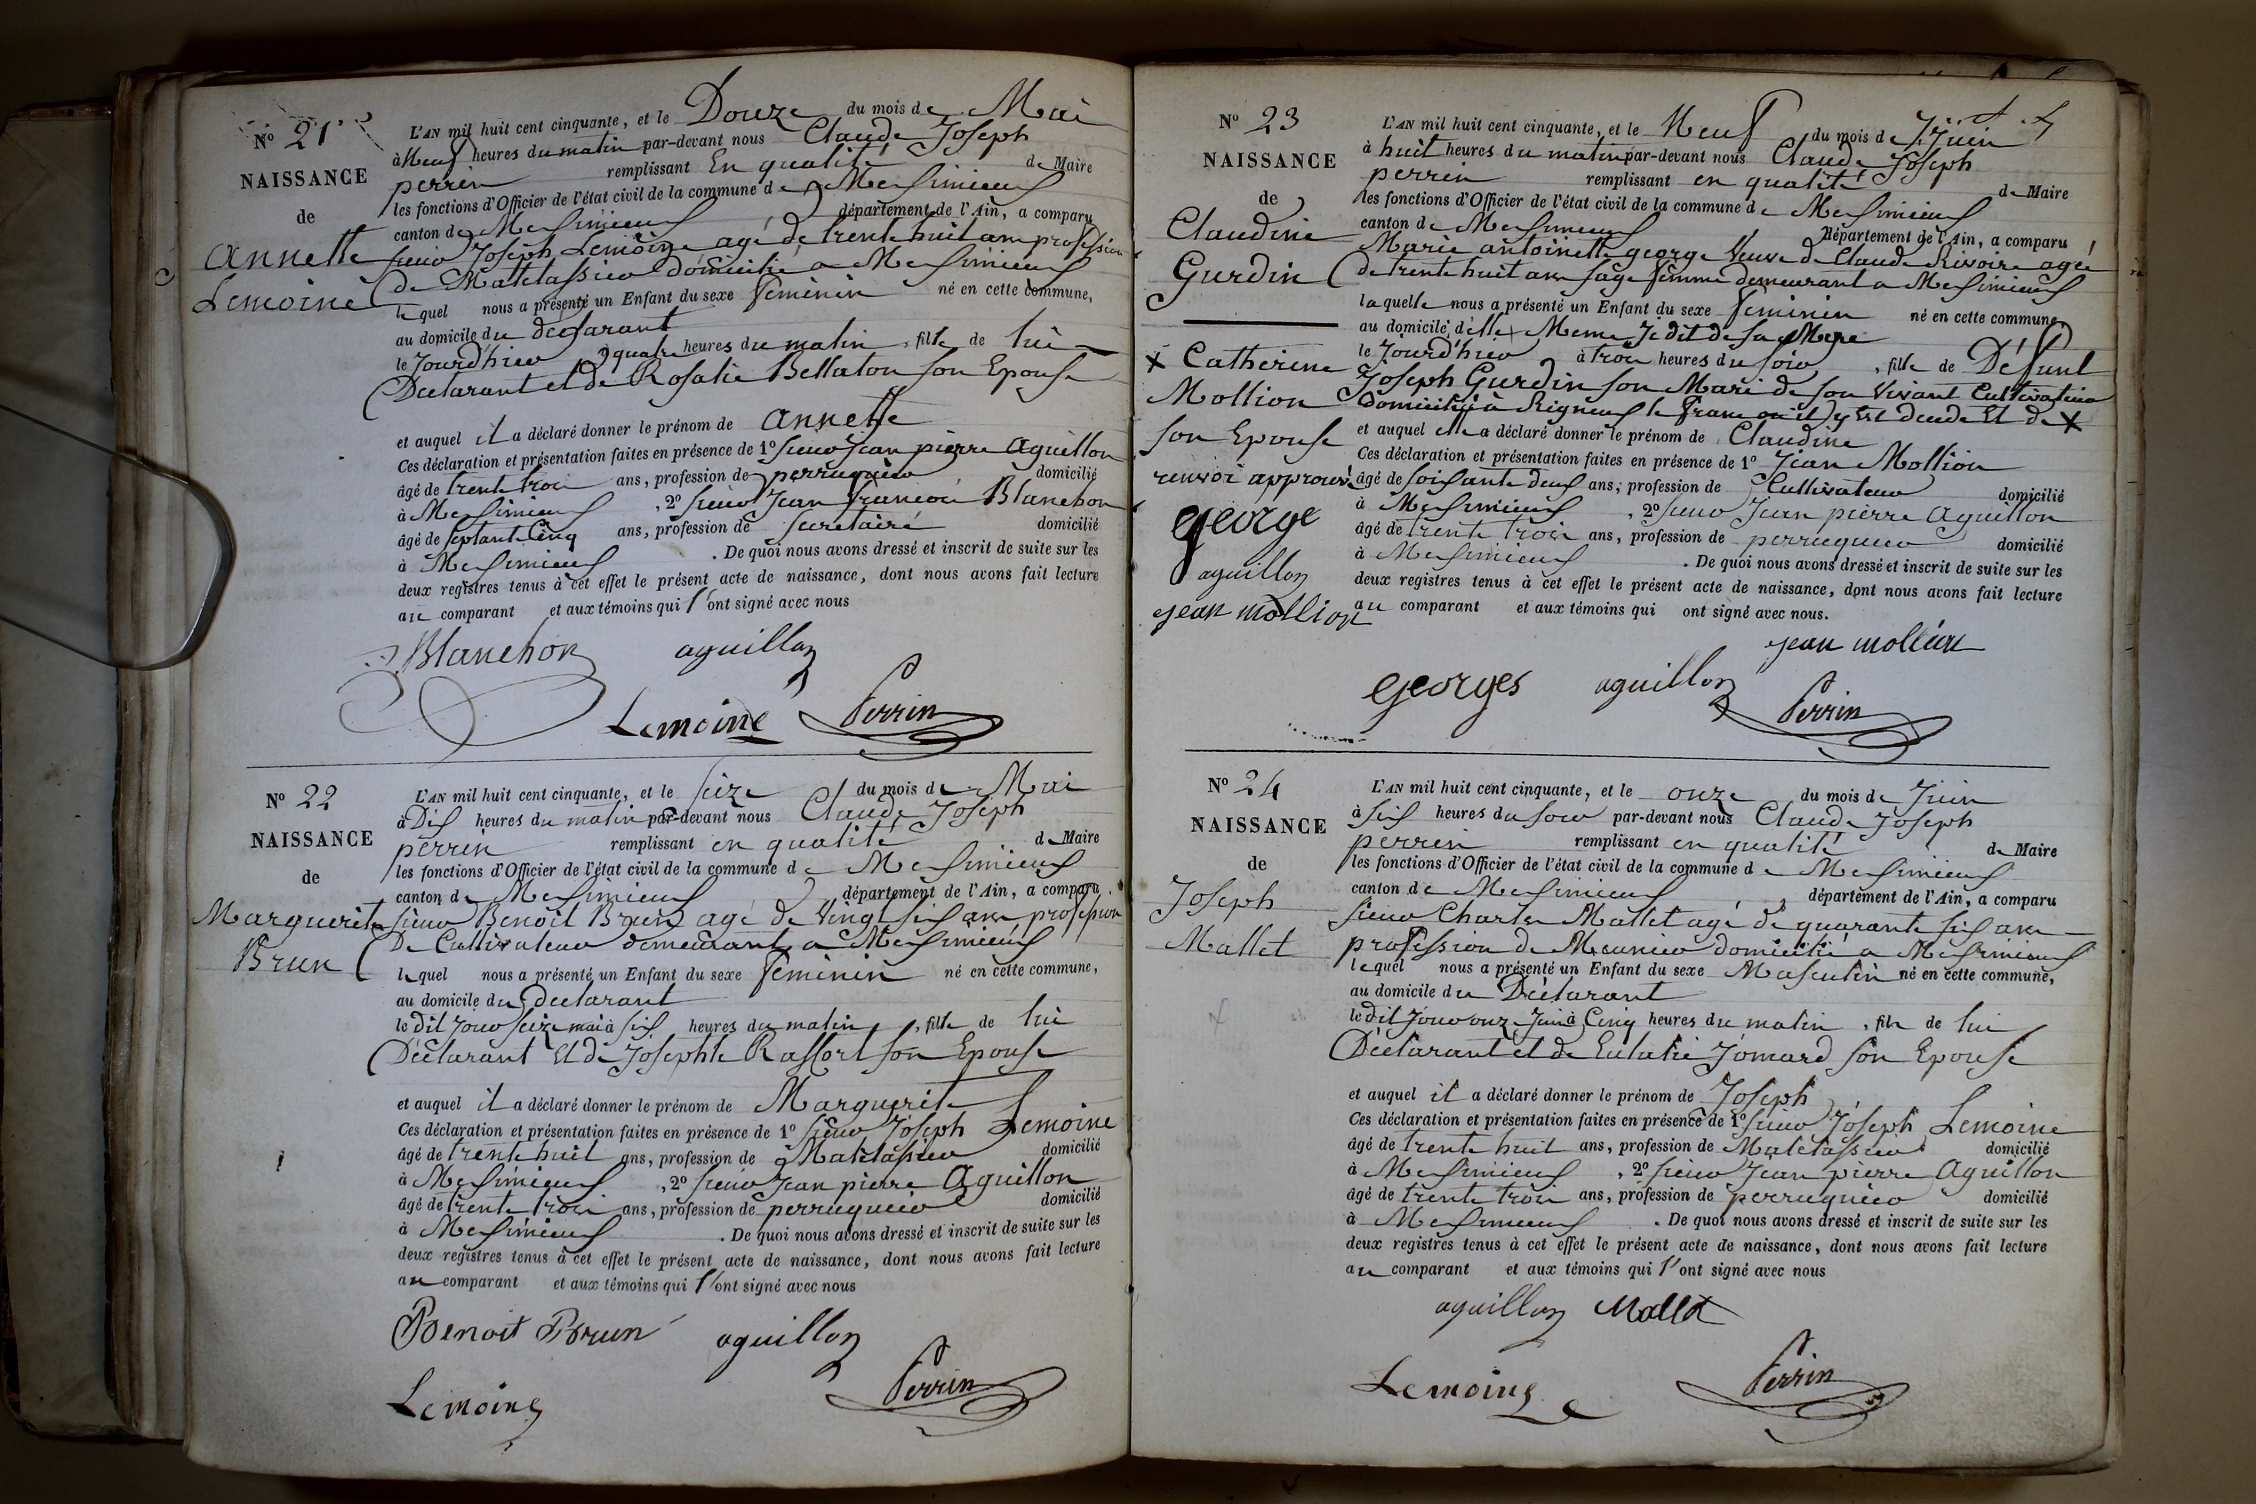 N.º 21
NAISSANCE
de
Annette
Lemoine
L'AN mil huit cent cinquante, et le Douze du mois de Mai
à Neuf heures du matin par-devant nous Claude Joseph
perrin remplissant En qualité de Maire
les fonctions d'Officier de l'état civil de la commune de Meximieux
canton de Meximieux département de l'Ain, a comparu
sieur Joseph Lemoine agé de trente huit ans profession
de Matelassier domicilié a Meximieux
lequel nous a présenté un Enfant du sexe feminin né en cette commune,
au domicile du declarant
le Jourd'hier à quatre heures du matin, fille de lui
Déclarant et de Rosalie Bellaton son Epouse
et auquel il a déclaré donner le prénom de annette
Ces déclaration et présentation faites en présence de 1º sieur Jean pierre Aguillon
âgé de trente trois ans, profession de perruquier domicilié
à Meximieux, 2º sieur Jean francois Blanchon
âgé de septante Cinq ans, profession de Secretaire domicilié
à Meximieux. De quoi nous avons dressé et inscrit de suite sur les
deux registres tenus à cet effet le présent acte de naissance, dont nous avons fait lecture
au comparant et aux témoins qui l'ont signé avec nous
Blanchon aguillon
Lemoine Perrin
N.º 22
NAISSANCE
de
Marguerite
Brun
L'AN mil huit cent cinquante, et le seize du mois de Mai
à Dix heures du matin par-devant nous Claude Joseph
perrin remplissant en qualité de Maire
les fonctions d'Officier de l'état civil de la commune de Meximieux
canton de Meximieux département de l'Ain, a comparu
sieur Benoit Brun agé de vingt six ans profession
De Cultivateur demeurant a Meximieux
lequel nous a présenté un Enfant du sexe feminin né en cette commune,
au domicile du declarant
le dit jour seize mai à six heures du matin, fille de lui
Déclarant Et de Josephte Raffort son Epouse
et auquel il a déclaré donner le prénom de Marguerite
Ces déclaration et présentation faites en présence de 1º sieur Joseph Lemoine
âgé de trente huit ans, profession de Matelassier domicilié
à Meximieux, 2º sieur Jean pierre Aguillon
âgé de trente trois ans, profession de perruquier domicilié
à Meximieux. De quoi nous avons dressé et inscrit de suite sur les
deux registres tenus à cet effet le présent acte de naissance, dont nous avons fait lecture
au comparant et aux témoins qui l'ont signé avec nous
Benoit Brun aguillon
Lemoine Perrin
N.º 23
NAISSANCE
de
Claudine
Gurdin
x Catherine
Mollion
son Epouse
renvoi approuvé
george
aguillon
jean mollion
L'AN mil huit cent cinquante, et le Neuf du mois de Juin
à huit heures du matin par-devant nous Claude Joseph
perrin remplissant en qualité de Maire
les fonctions d'Officier de l'état civil de la commune de Meximieux
canton de Meximieux département de l'Ain, a comparu
Marie antoinette george Veuve de Claude Rivoire agée
de trente huit ans sage femme demeurant a Meximieux
laquelle nous a présenté un Enfant du sexe feminin né en cette commune
au domicile d'elle Meme Je dit de sa Mere
le Jourd'hier à trois heures du soir, fille de Défunt
Joseph Gurdin son Mari de son Vivant Cultivateur
Domicilié à Rigneux le franc ou il y Est décédé Et de x
et auquel elle a déclaré donner le prénom de Claudine
Ces déclaration et présentation faites en présence de 1º Jean Mollion
âgé de soisante deux ans, profession de Cultivateur domicilié
à Meximieux, 2º sieur Jean pierre Aguillon
âgé de trente trois ans, profession de perruquier domicilié
à Meximieux. De quoi nous avons dressé et inscrit de suite sur les
deux registres tenus à cet effet le présent acte de naissance, dont nous avons fait lecture
au comparant et aux témoins qui ont signé avec nous.
jean mollion
georges aguillon Perrin
N.º 24
NAISSANCE
de
Joseph
Mallet
L'AN mil huit cent cinquante, et le onze du mois de Juin
à six heures du soir par-devant nous Claude Joseph
perrin remplissant en qualité de Maire
les fonctions d'Officier de l'état civil de la commune de Meximieux
canton de Meximieux, département de l'Ain, a comparu
sieur Charles Mallet agé de quarante six ans
profession de Meunier domicilié a Meximieux
lequel nous a présenté un Enfant du sexe Masculin né en cette commune,
au domicile du Déclarant
le dit jour onze Juin à Cinq heures du matin, fils de lui
Déclarant et de Eulalie Jomard son Epouse
et auquel il a déclaré donner le prénom de Joseph
Ces déclaration et présentation faites en présence de 1º sieur Joseph Lemoine
âgé de trente huit ans, profession de Matelassier domicilié
à Meximieux, 2º sieur Jean pierre Aguillon
âgé de trente trois ans, profession de perruquier domicilié
à Meximieux. De quoi nous avons dressé et inscrit de suite sur les
deux registres tenus à cet effet le présent acte de naissance, dont nous avons fait lecture
au comparant et aux témoins qui l'ont signé avec nous
aguillon Mallet
Lemoine Perrin